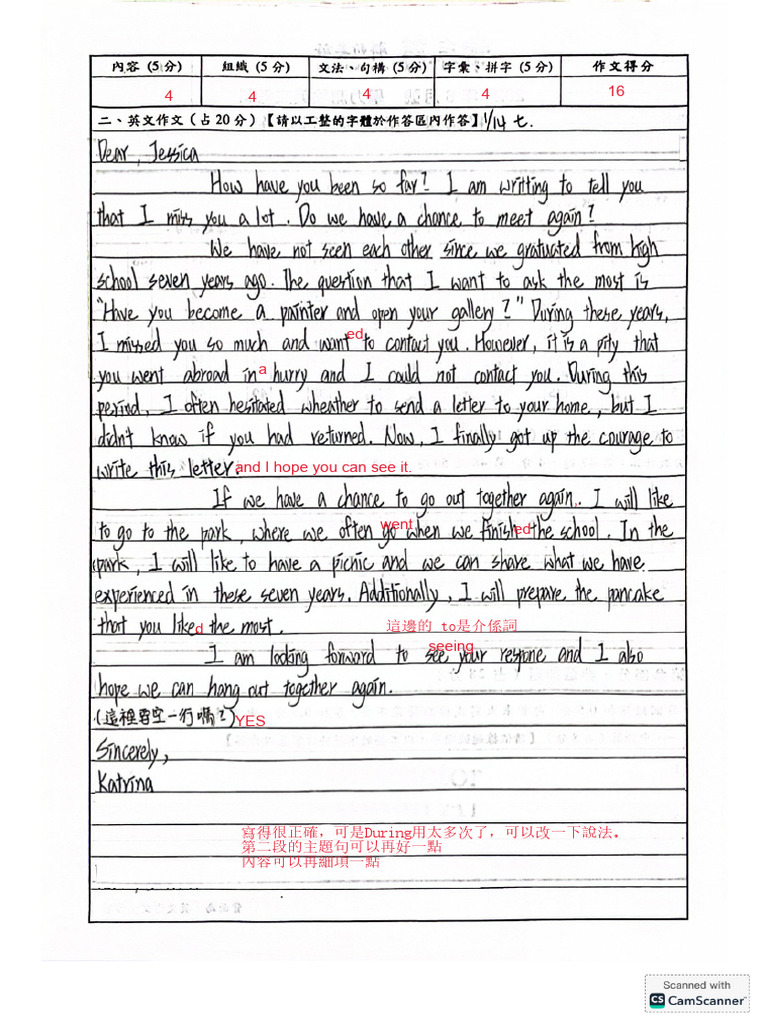 內容 (5分) 組織 (5分) 文法、句構 (5分) 字彙、拼字 (5分) 作文得分
4 4 4 4 16
二、英文作文（占20分）【請以工整的字體於作答區內作答】1/14 七.
Dear, Jessica
How have you been so far? I am writting to tell you
that I miss you a lot. Do we have a chance to meet again?
We have not seen each other since we gratuated from high
school seven years ago. The question that I want to ask the most is
"Have you become a painter and open your gallery?" During these years,
I missed you so much and want ed to contact you. However, it is a pity that
you went abroad in a hurry and I could not contact you. During this
period, I often hesitated wheather to send a letter to your home., but I
didn't know if you had returned. Now, I finally got up the courage to
write this letter. and I hope you can see it.
If we have a chance to go out together again.. I will like
to go to the park, where we often go went when we finish ed the school. In the
park, I will like to have a picnic and we can share what we have
experienced in these seven years. Additionally, I will prepare the pancake
that you like d the most. 這邊的 to是介係詞
seeing
I am looking forward to see your respone and I also
hope we can hang out together again.
(這裡要空一行嗎?) YES
Sincerely,
Katrina
寫得很正確，可是During用太多次了，可以改一下說法。
第二段的主題句可以再好一點
內容可以再細項一點
Scanned with
CS CamScanner